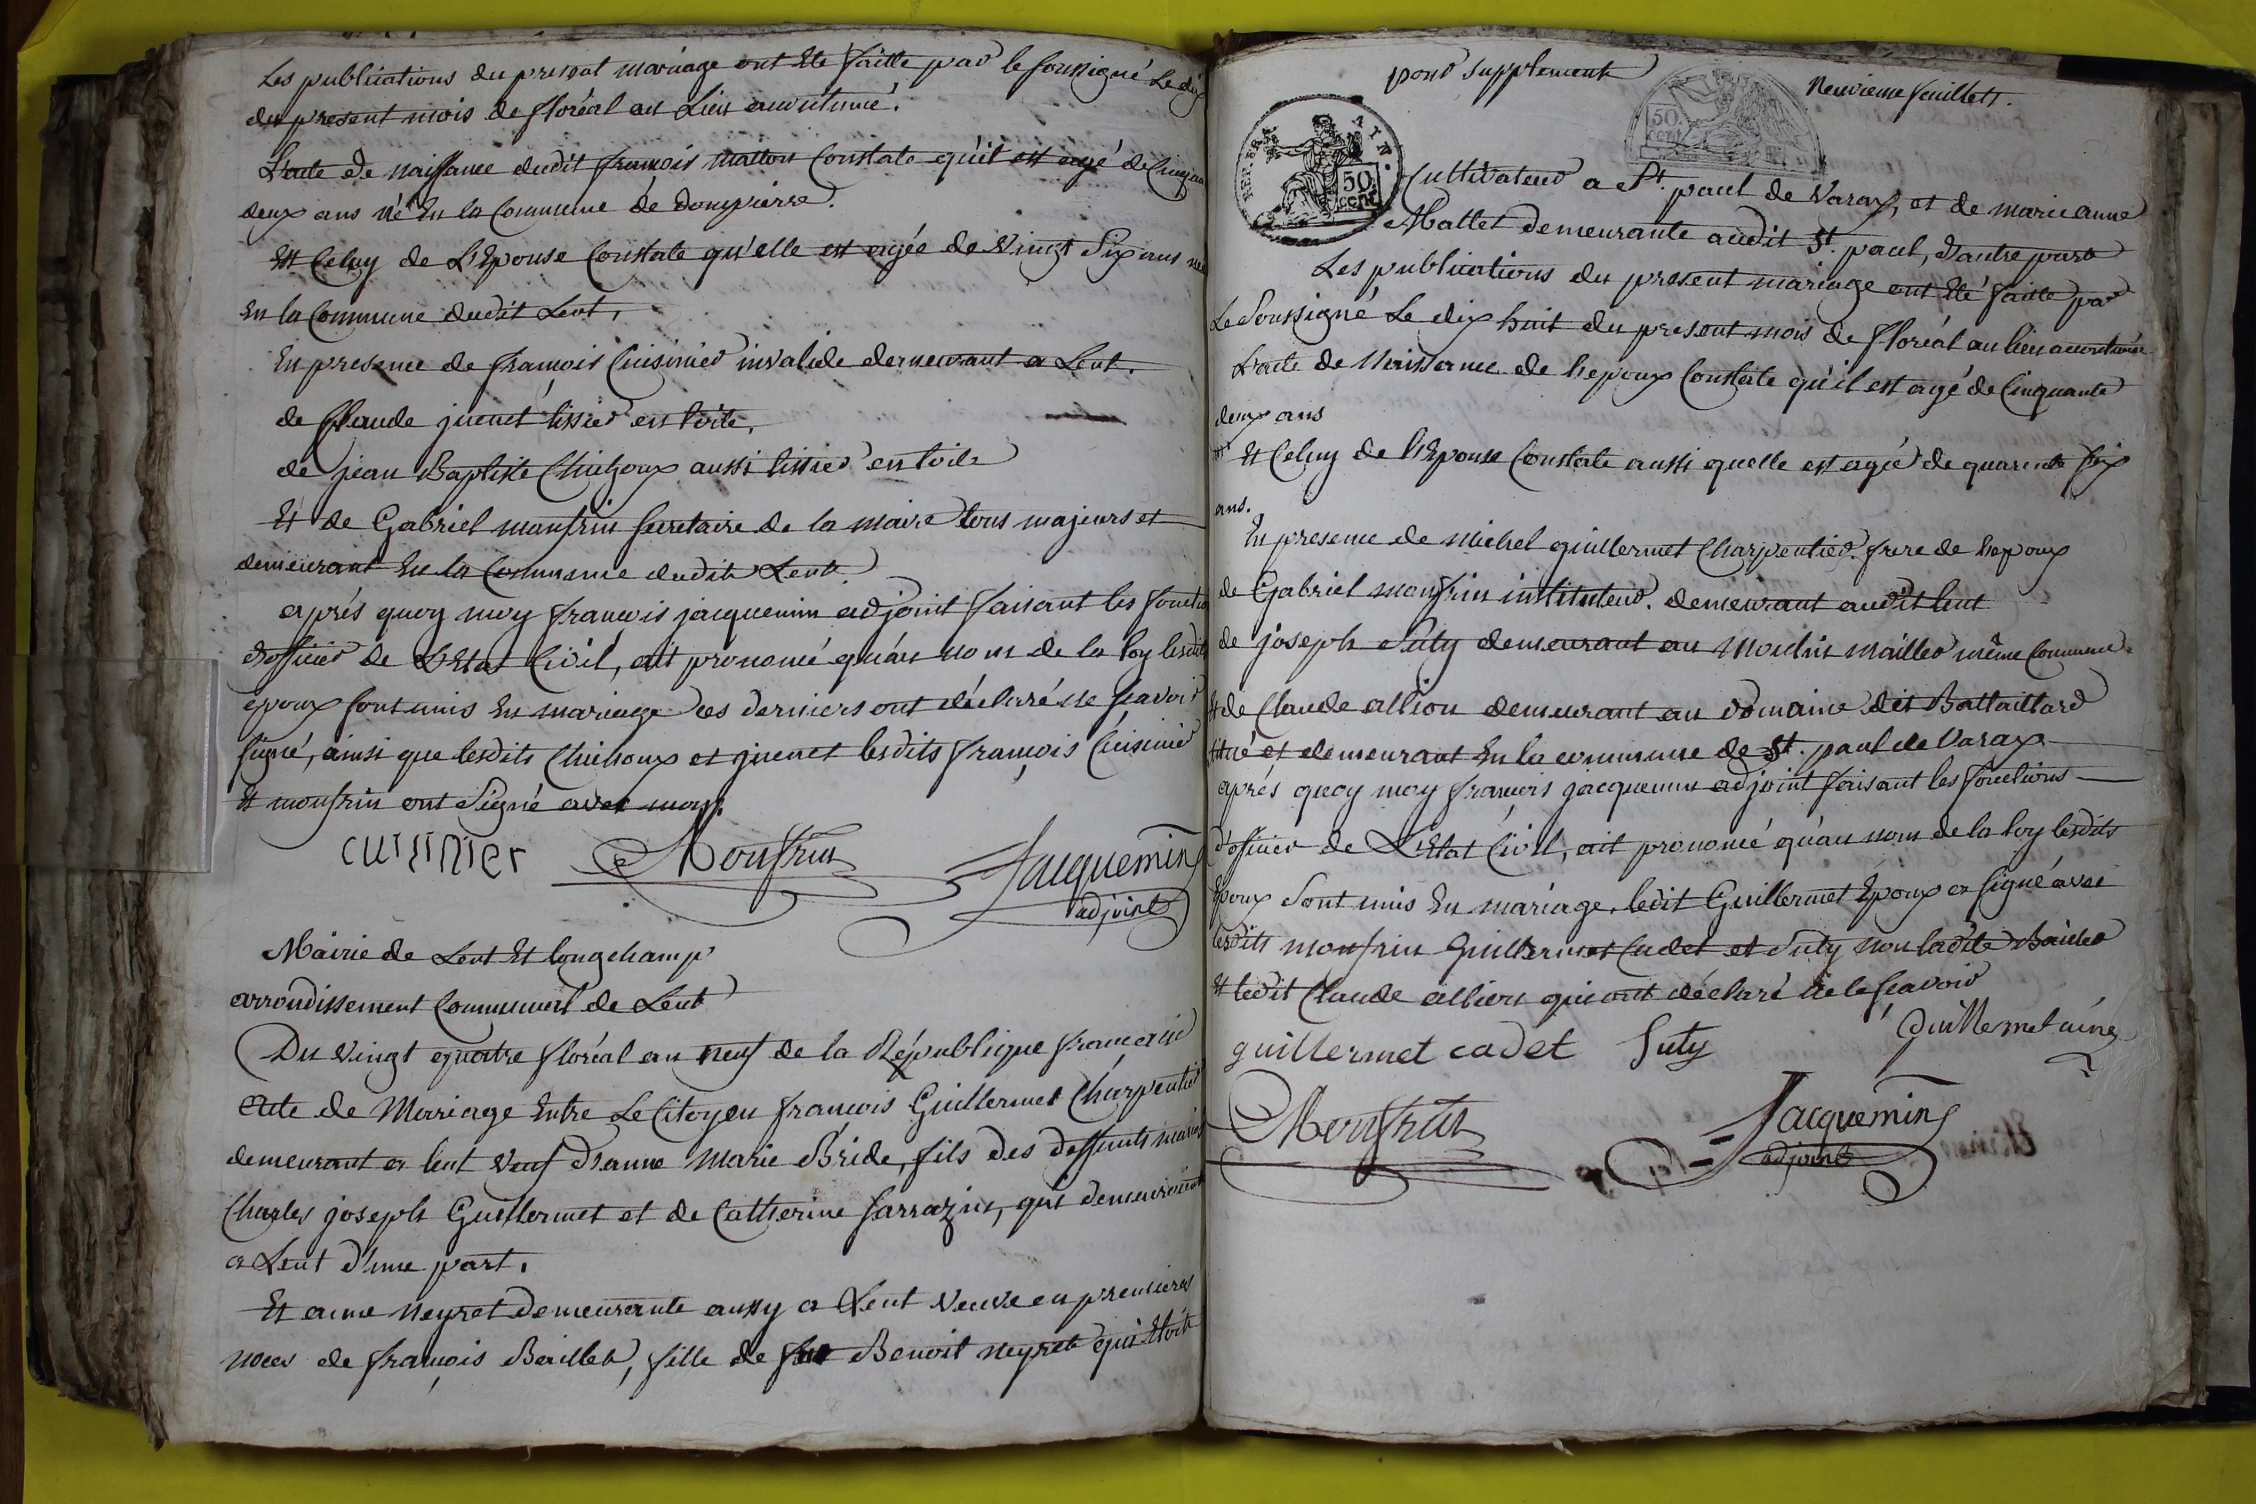 Les publications du present mariage ont Eté faitte par le soussigné Le dix
du present mois de floréal au Lieu acoutumé.
L'acte De naissance dudit francois matton Constate qu'il est agé de Cinq
deux ans né En la Commune de dompierre.
Et Celuy de L'Epouse Constate qu'elle est agée de Vingt Six ans née
En la Commune dudit Lent,
En presence de francois Cuisinier invalide demeurant a Lent.
de Claude juenet tissier en toile,
de jean Baptiste Chichoux aussi tissier en toile
Et de Gabriel monfrin secretaire de la maire tous majeurs et
demeurant En la Commune dudit Lent.
après quoy moy francois jacquemin adjoint faisant les fonctions
d'officier de L'Etat Civil, ait prononcé qu'au nom de la loy lesdits
epoux sont unis En mariage ces derniers ont déclaré ne scavoir
signé, ainsi que lesdits Chichoux et juenet lesdits francois Cuisinier
Et monfrin ont Signé avec moy.
cuisinier Monfrin Jacquemin
adjoint
Mairie de Lent Et longchamp
arrondissement Communal de Lent
Du vingt quatre floréal an neuf de la République francaise
acte de Mariage Entre Le Citoyen francois Guillermet Charpentier
demeurant a lent veuf d'anne Marie Bride, fils des deffunts mariés
Charles joseph Guillermet et de Catherine sarrazin, qui demeuroient
a Lent d'une part.
Et anne Neyret Demeurante aussy a Lent veuve en premieres
noces de francois Baillet, fille de feu Benoit neyret qui Etoit
pour supplement
Neuvieme feuillet.
REP. FRA. AIN.
50 cent
50 cent
Cultivateur a St. paul de Varax, et de marie anne
Mallet demeurante audit St. paul, d'autre part
Les publications du present mariage ont Eté faitte par
Le Soussigné Le dix huit du present mois de floréal au lieu accoutumé
L'acte de Naissance de l'epoux Constate qu'il est agé de Cinquante
deux ans
Et Celuy de l'Epouse Constate aussi quelle est agée de quarante six
ans.
En presence de Michel guillermet Charpentier frere de l'epoux
de Gabriel monfrin instituteur. demeurant audit lent
de joseph Suty demeurant au Moulin même Commune.
Et de Claude allion demeurant au domaine dit Battaillard
situé et demeurant En la commune de St. paul de Varax
après quoy moy francois jacquemin adjoint faisant les fonctions
d'officier de L'Etat Civil, ait prononcé qu'au nom de la loy lesdits
Epoux sont unis En mariage, ledit Guillermet Epoux a signé avec
lesdits monfrin Guillermet Cadet et Suty non ladite
Et ledit Claude allion qui ont déclaré ne le scavoir
guillermet cadet Suty Guillermet ainé
Monfrin Jacquemin
adjoint